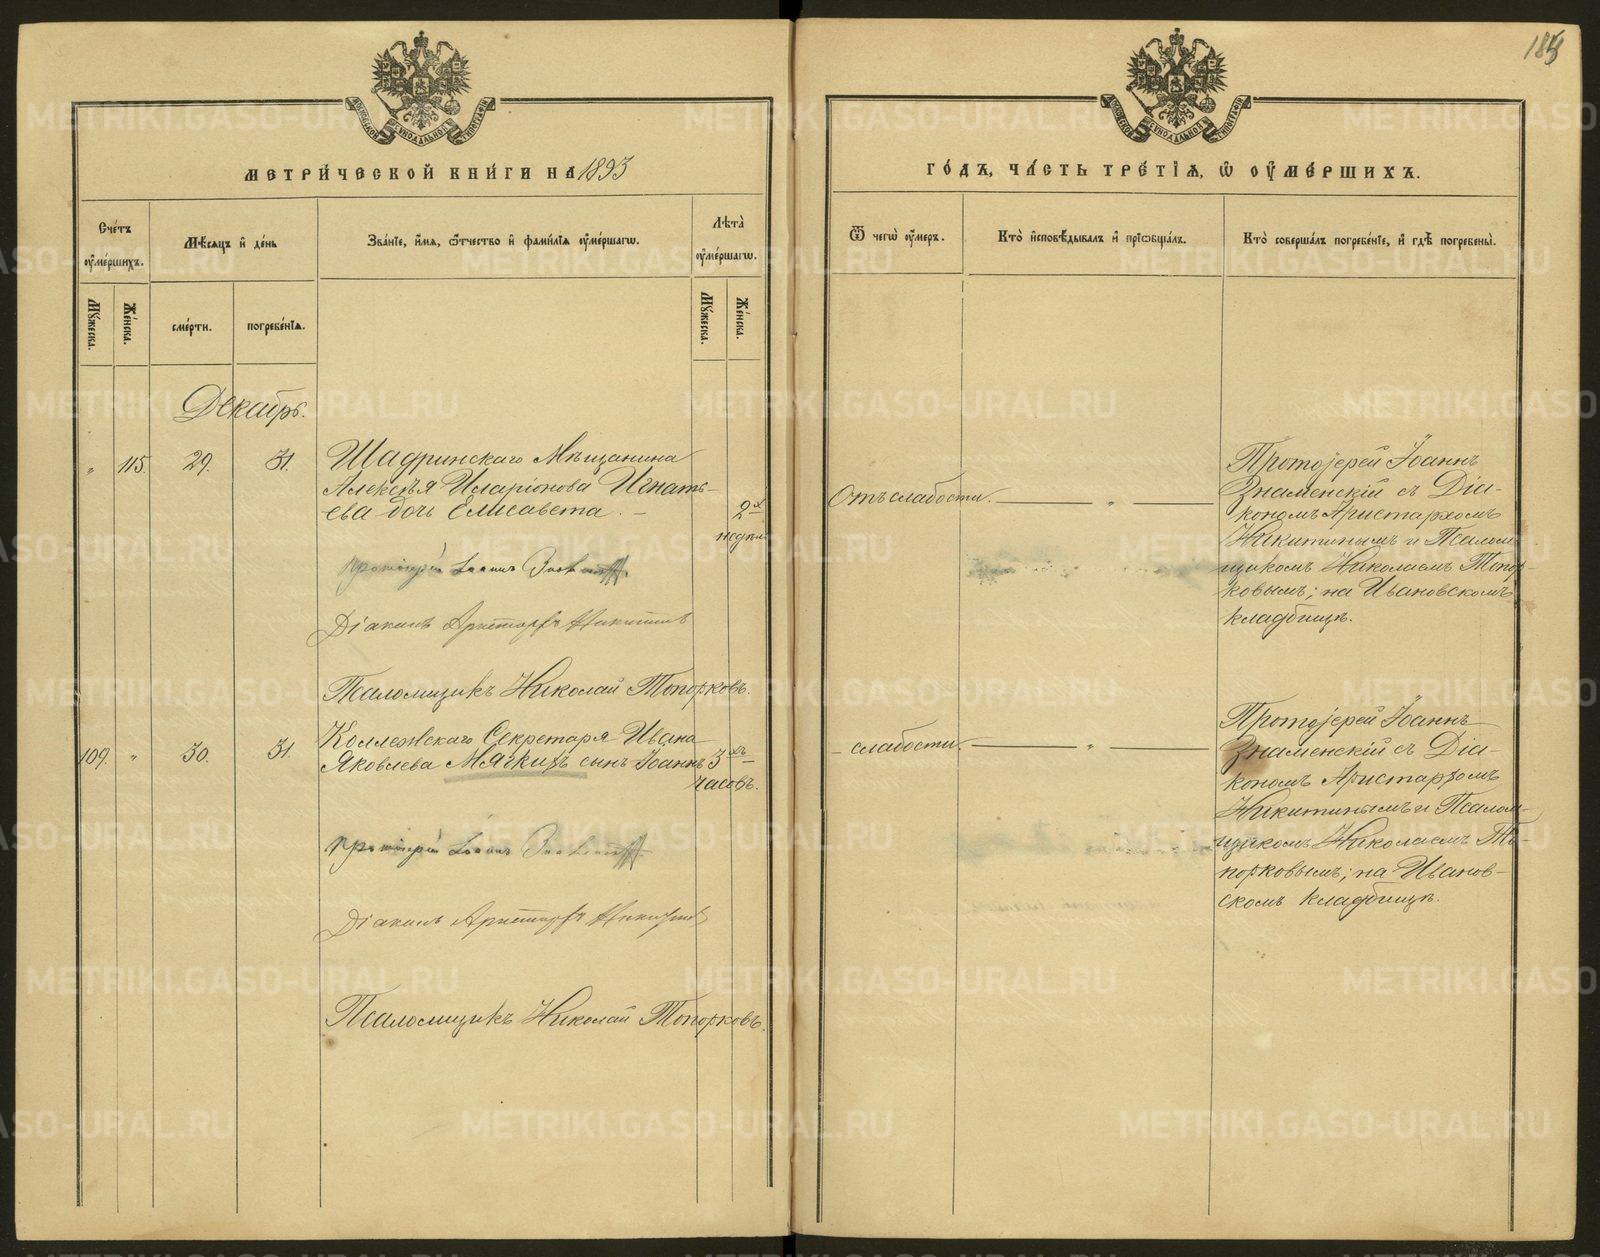 МЕТРИ́ЧЕСКОЙ КНИ́ГИ НА 1893
Сче́тъ ᲂу҆ме́ршихъ.
Мѣ́сяцъ и҆ де́нь
Зва́нїе, и҆́мя, ѻ҆́тчество и҆ фами́лїѧ ᲂу҆ме́ршагѡ.
Лѣта̀ ᲂу҆ме́ршагѡ.
Му́жеска.
Же́нска.
сме́рти.
погребе́нїѧ.
Му́жеска.
Же́нска.
Декабрь.
„ 115. 29. 31. Шадринскаго Мѣщанина
Алексѣя Иларіонова Игнать-
ева дочь Елисавета. — 2х
недѣл.
Протоіерей Іоаннъ
Діаконъ Аристархъ Никитинъ
Псаломщикъ Николай Топорковъ.
109. „ 30. 31. Коллежскаго Секретаря Ивана
Яковлева Мягкихъ сынъ Іоаннъ 3хъ
часовъ.
Протоіерей Іоаннъ
Діаконъ Аристархъ Никитинъ
Псаломщикъ Николай Топорковъ.
ГО́ДЪ, ЧА́СТЬ ТРЕ́ТЇѦ, Ѡ҆ ОУ҆МЕ́РШИХЪ.
Ѿ чегѡ̀ ᲂу҆́меръ.
Кто̀ и҆сповѣ́дывалъ и҆ прїѡбща́лъ.
Кто̀ соверша́лъ погребе́нїе, и҆ гдѣ̀ погребены̀.
Отъ слабости. — „ —
Протоіерей Іоаннъ
Знаменскій съ Діа-
кономъ Аристархомъ
Никитинымъ и Псалом-
щикомъ Николаемъ Топор-
ковымъ; на Ивановскомъ
кладбищѣ.
- слабости. — „ —
Протоіерей Іоаннъ
Знаменскій съ Діа-
кономъ Аристархомъ
Никитинымъ и Псалом-
щикомъ Николаемъ То-
порковымъ; на Иванов-
скомъ кладбищѣ.
METRIKI.GASO-URAL.RU